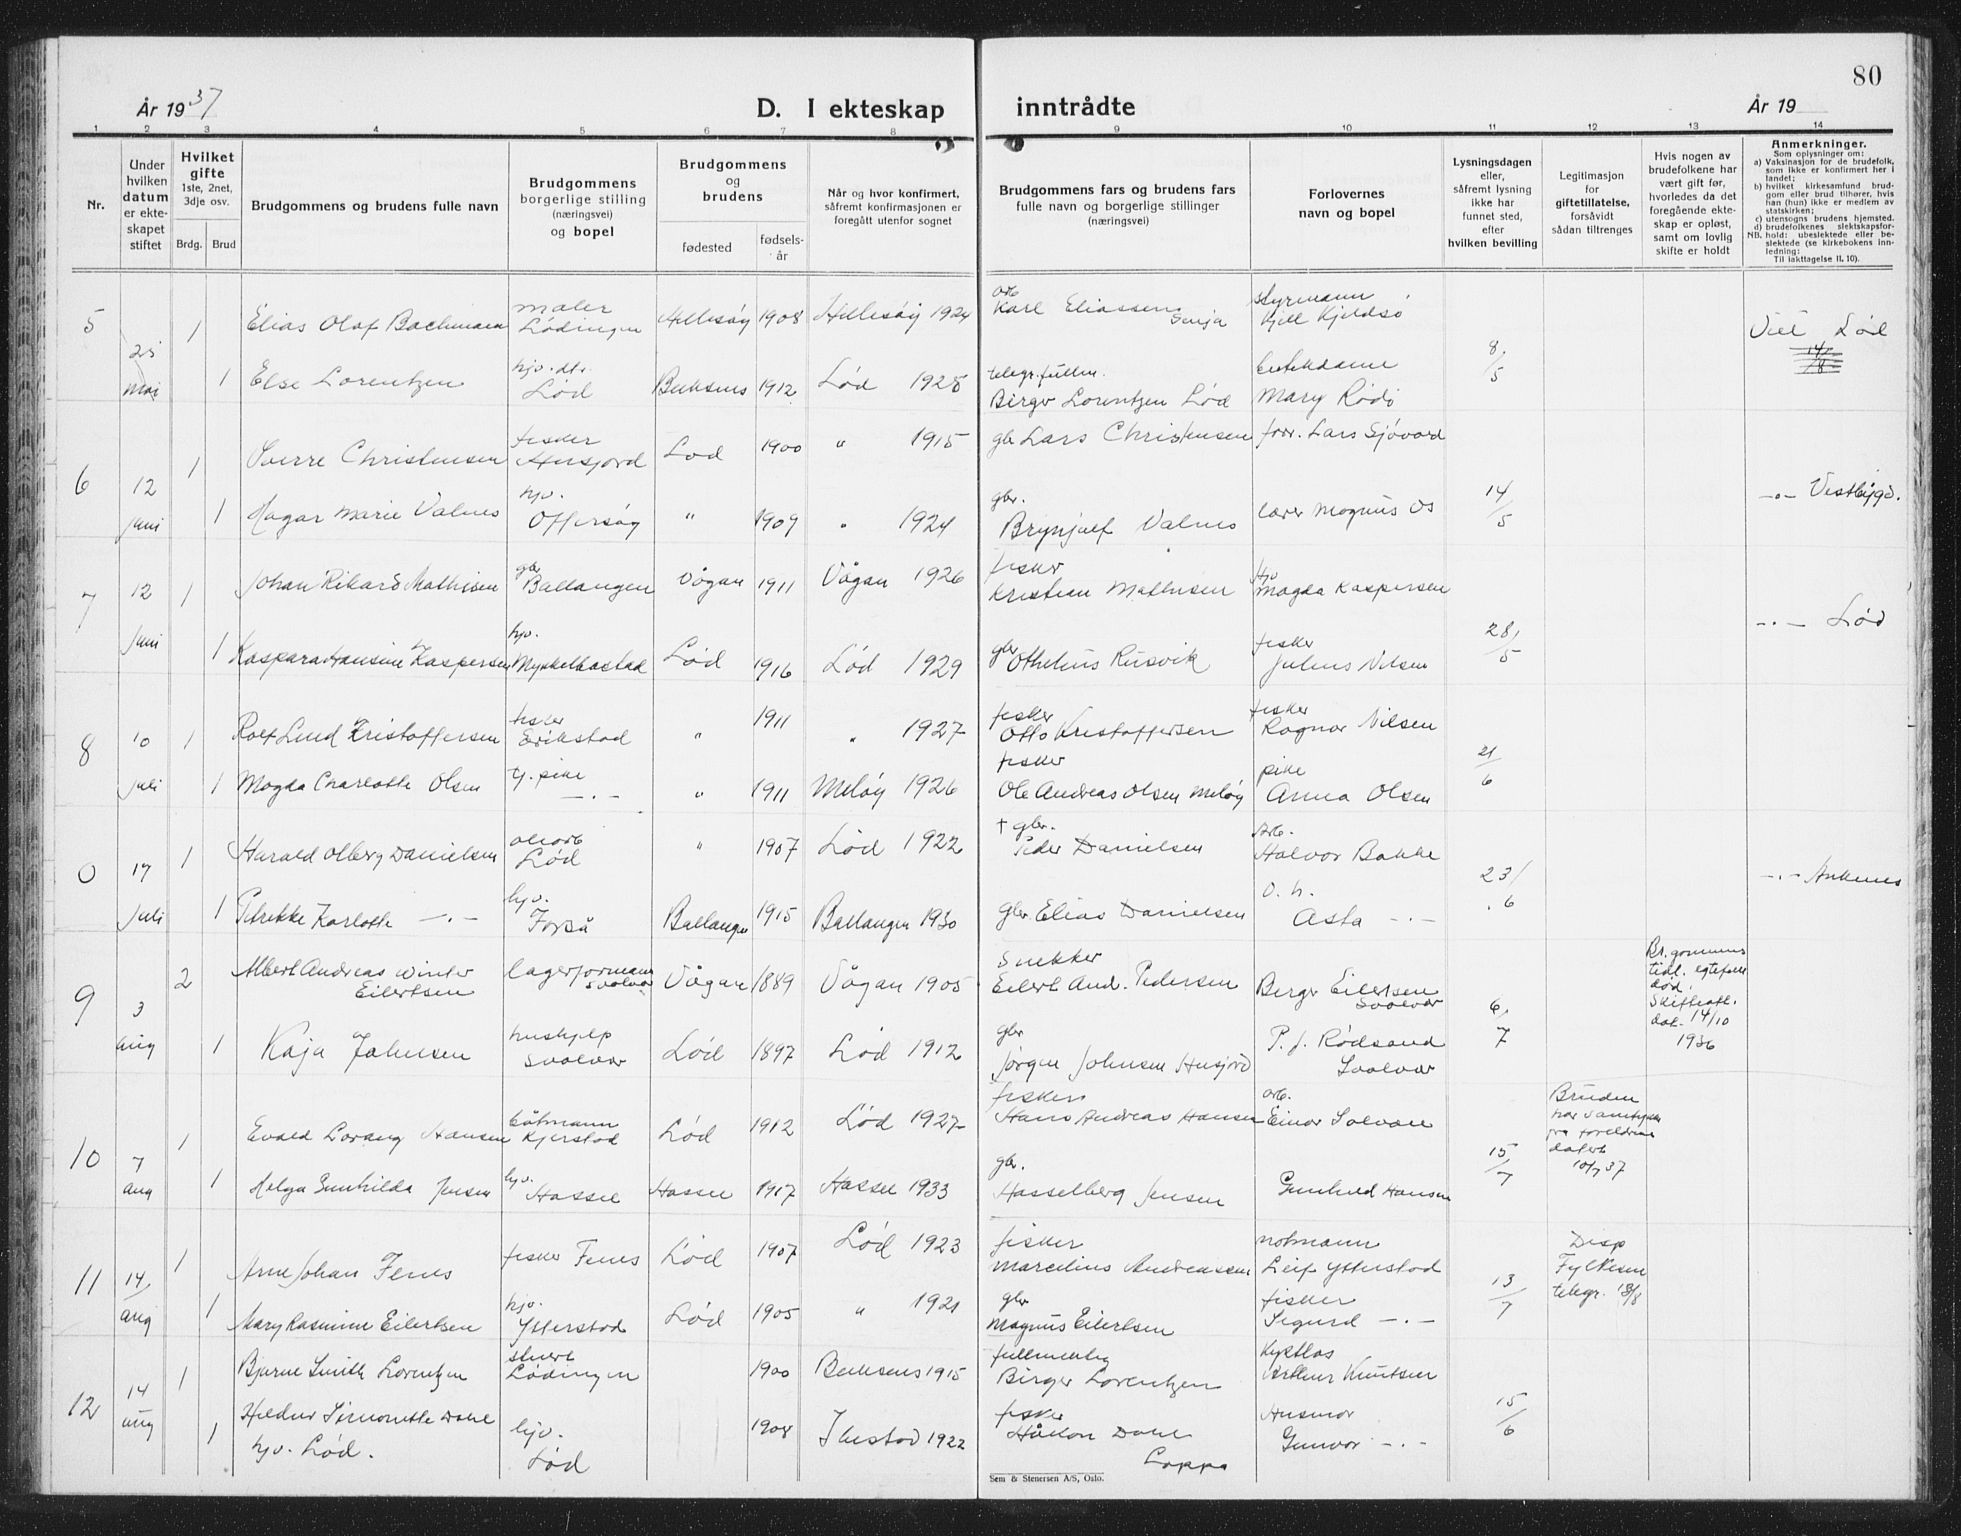 80
År 1937
D. I ekteskap inntrådte
År 19
1 2 3 4 5 6 7 8 9 10 11 12 13 14
Nr.
Under hvilken datum er ekteskapet stiftet
Hvilket gifte
1ste, 2net, 3dje osv.
Brdg. Brud
Brudgommens og brudens fulle navn
Brudgommens borgerlige stilling (næringsvei) og bopel
Brudgommens og brudens
fødested
fødselsår
Når og hvor konfirmert, såfremt konfirmasjonen er foregått utenfor sognet
Brudgommens fars og brudens fars fulle navn og borgerlige stillinger (næringsvei)
Forlovernes navn og bopel
Lysningsdagen eller, såfremt lysning ikke har funnet sted, efter hvilken bevilling
Legitimasjon for giftetillatelse, forsåvidt sådan tiltrenges
Hvis nogen av brudefolkene har vært gift før, hvorledes da det foregående ekteskap er opløst, samt om lovlig skifte er holdt
Anmerkninger.
Som oplysninger om:
a) Vaksinasjon for de brudefolk, som ikke er konfirmert her i landet;
b) hvilket kirkesamfund brudgom eller brud tilhører, hvis han (hun) ikke er medlem av statskirken;
c) utensogns brudens hjemsted.
d) brudefolkenes slektskapsforhold: ubeslektede eller beslektede (se kirkebokens innledning:
NB.
Til iakttagelse II. 10).
5 1 Elias Olaf Bachmann maler Lødingen 1908 1924 arb Karl Eliassen Senja styrmann Kjell Kjeldsø
mai 1 Else Lorentzen hjv. dt. Lød Buksnes 1912 Lød 1928 telegr.fullm. Birger Lorentzen Lød Mary Rødø 8/5 Viet Lød
6 12 juni 1 Sverre Christensen fisker Husfjord Lød 1900 " 1915 gbr Lars Christensen forr. Lars Sjøvord
1 Hagar Marie Valnes hjv. Offersøy " 1909 " 1924 gbr. Brynjulf Valnes lærer Magnus Os 14/5 -"- Vestbygd.
7 12 juni 1 Johan Rikard Mathisen gbr Ballangen Vågan 1911 Vågan 1926 fisker Kristian Mathisen Hjv Magda Kaspersen
1 Kaspara Hansine Kaspersen hjv. Lød 1916 Lød 1929 gbr Othelius Rusvik fisker Julius Nilsen 28/5 -"- Lød
8 10 juli 1 Rolf Lund Kristoffersen fisker Erikstad " 1911 " 1927 fisker Otto Kristoffersen fisker Ragnar Nilsen
1 Magda Charlotte Olsen tj. pike -"- " 1911 Meløy 1926 fisker Ole Andreas Olsen Meløy pike Anna Olsen 21/6
0 17 juli 1 Harald Olberg Danielsen Lød " 1907 Lød 1922 † gbr. Peder Danielsen Arb. Halvor Bakke
1 Petrikke Karlotte -"- hjv. Forså Ballangen 1915 Ballangen 1930 gbr Elias Danielsen Asta -"- 23/6 -"- Ankenes
9 3 aug 2 Albert Andreas Winter Eilertsen lagerformann Svolvær Vågan 1889 Vågan 1905 snekker Eilert And. Pedersen Birger Eilertsen Svolvær Br.gommens tidl. egtefelle død. Skifteatt. dat. 14/10 1936
1 Kaja Johnsen hushjelp Svolvær Lød 1897 Lød 1912 gbr Jørgen Johnsen Husfjord P. J. Rødsand Svolvær 6/7
10 7 aug 1 Evald Lorang Hansen båtmann Kjerstad Lød 1912 Lød 1927 fisker Hans Andreas Hansen arb. Einar Solvoll Bruden har samtykke fra foreldrene datert 10/7 37
1 Helga Gunhilda Jensen hjv. Hassel Hassel 1917 Hassel 1933 gbr. Hasselberg Jensen Gunhild Hansen 15/7
11 14/ aug 1 Arne Johan Fenes fisker Fenes Lød 1907 Lød 1923 fisker Marcelius Andreassen notmann Leif Ytterstad Disp Fylkesm telegr. 13/8
1 Mary Rasmine Eilertsen hjv. Ytterstad Lød 1905 " 1921 gbr Magnus Eilertsen fisker Sigurd -"- 13/7
12 14 aug 1 Bjarne Smith Lorentzen stuert Lødingen 1900 Buksnes 1915 fullmektig Birger Lorentzen Arthur Knutsen
1 Simonette Dahl hjv. Lød. hjv. Lød 1908 Ibestad 1922 fisker Håkon Dahl Loppa Husmor Gunvor -"- 15/6
Sem & Stenersen A/S, Oslo.